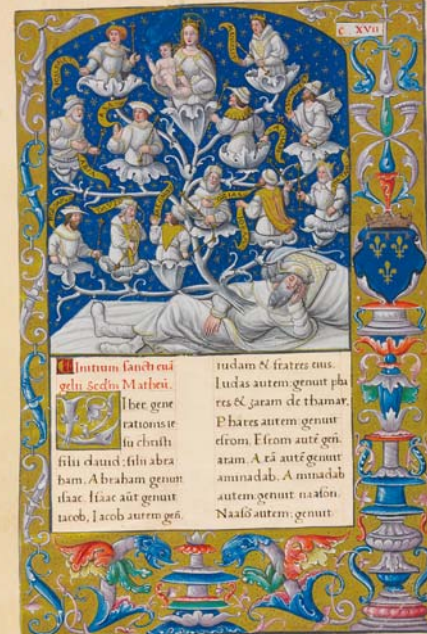 C XVII
Initium sancti euā
gelii Scdm Matheū.
Liber gene
rationis ie
su christi
filii dauid: filii abra
ham. Abraham genuit
isaac. Isaac aūt genuit
iacob, Iacob autem geñ.
iudam & fratres eius.
Iudas autem genuit pha
res & zaram de thamar,
Phares autem genuit
esrom. Esrom autē geñ
aram. Arā autē genuit
aminadab. Aminadab
autem genuit naason.
Naasō autem: genuit